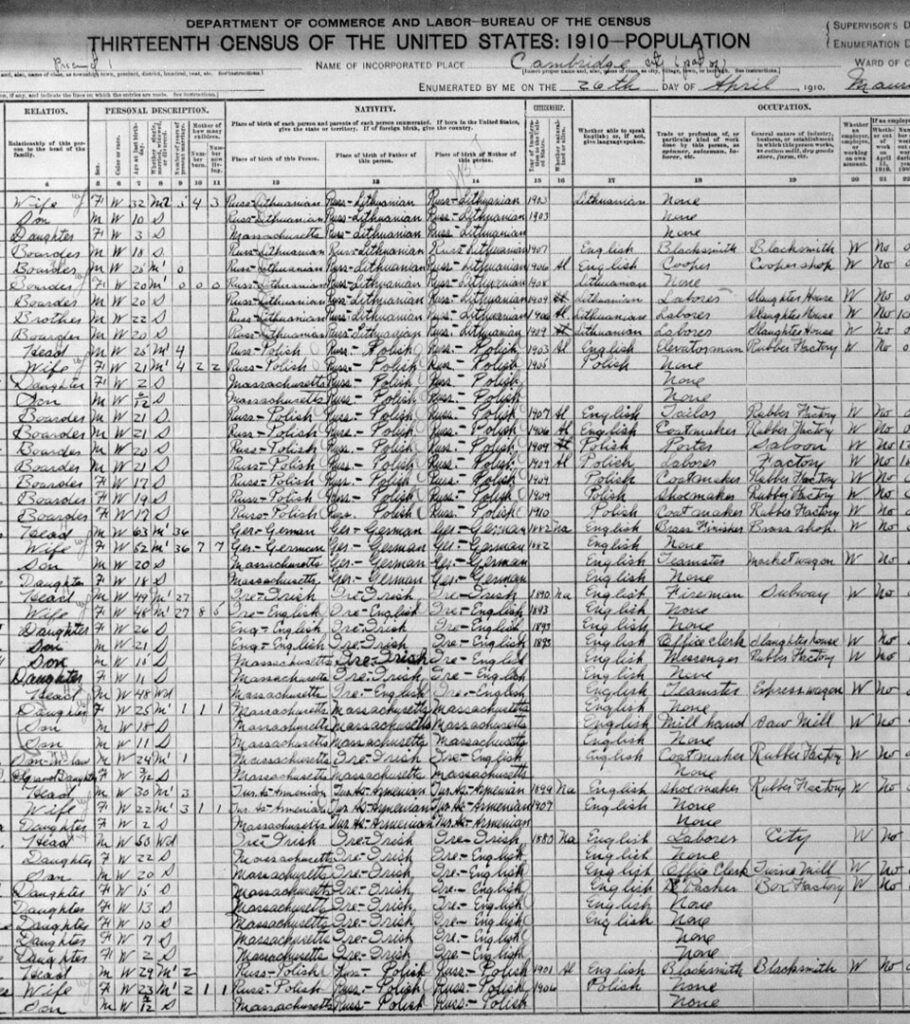 DEPARTMENT OF COMMERCE AND LABOR—BUREAU OF THE CENSUS
THIRTEENTH CENSUS OF THE UNITED STATES: 1910—POPULATION
SUPERVISOR'S D
ENUMERATION D
NAME OF INCORPORATED PLACE Cambridge
WARD OF C
ENUMERATED BY ME ON THE 26th DAY OF April, 1910.
RELATION. PERSONAL DESCRIPTION. NATIVITY. CITIZENSHIP. OCCUPATION.
Relationship of this person to the head of the family.
Place of birth of each person and parents of each person enumerated. If born in the United States, give the state or territory. If of foreign birth, give the country.
Place of birth of this Person. Place of birth of Father of this person. Place of birth of Mother of this person.
Whether able to speak English; or, if not, give language spoken.
Trade or profession of, or particular kind of work done by this person, as spinner, salesman, laborer, etc.
General nature of industry, business, or establishment in which this person works, as cotton mill, dry goods store, farm, etc.
Wife F W 32 M2 5 4 3 Russ-Lithuanian Russ-Lithuanian Russ-Lithuanian 1903 Lithuanian None
Son M W 10 S Russ-Lithuanian Russ-Lithuanian Russ-Lithuanian 1903 None
Daughter F W 3 S Massachusetts Russ-Lithuanian Russ-Lithuanian None
Boarder M W 18 S Russ-Lithuanian Russ-Lithuanian Russ-Lithuanian 1907 English Blacksmith Blacksmith W No
Boarder M W M1 0 Russ-Lithuanian Russ-Lithuanian Russ-Lithuanian 1906 Al English Cooper Cooper shop W No
Boarder F W 20 M1 0 0 0 Russ-Lithuanian Russ-Lithuanian Russ-Lithuanian 1908 Lithuanian None
Boarder M W 20 S Russ-Lithuanian Russ-Lithuanian Russ-Lithuanian 1909 Lithuanian Laborer Slaughter House W No
Brother M W 22 S Russ-Lithuanian Russ-Lithuanian Russ-Lithuanian Al Lithuanian Laborer Slaughter House W No
Boarder M W 20 S Russ-Lithuanian Russ-Lithuanian Russ-Lithuanian 1909 Lithuanian Laborer Slaughter House W No
Head M W 25 M1 4 Russ-Polish Russ-Polish Russ-Polish 1903 Al English Elevatorman Rubber Factory W No
Wife F W 21 M1 4 2 2 Russ-Polish Russ-Polish Russ-Polish 1905 Polish None
Daughter F W 2 S Massachusetts Russ-Polish Russ-Polish None
Son M W S Massachusetts Russ-Polish Russ-Polish None
Boarder M W 21 S Russ-Polish Russ-Polish Russ-Polish 1907 Al English Tailor Rubber Factory W No
Boarder M W 21 S Russ-Polish Russ-Polish Russ-Polish 1906 Al English Coatmaker Rubber Factory W No
Boarder M W 20 S Russ-Polish Russ-Polish Russ-Polish 1909 Polish Porter Saloon W No
Boarder M W 21 S Russ-Polish Russ-Polish Russ-Polish 1907 Al Polish Laborer Factory W No
Boarder F W 17 S Russ-Polish Russ-Polish Russ-Polish 1909 Polish Coatmaker Rubber Factory W No
Boarder F W 19 S Russ-Polish Russ-Polish Russ-Polish 1909 Polish Shoemaker Rubber Factory W No
Boarder F W 17 S Russ-Polish Russ-Polish Russ-Polish 1910 Polish Coat maker Rubber Factory W No
Head M W 63 M1 36 Ger-German Ger-German Ger-German 1882 Na English Finisher Brass shop W No
Wife F W 52 M1 36 7 7 Ger-German Ger-German Ger-German 1882 English None
Son M W 20 S Massachusetts Ger-German Ger-German English Teamster Market wagon W No
Daughter F W 18 S Massachusetts Ger-German Ger-German English None
Head M W 49 M1 27 Ire-Irish Ire-Irish Ire-Irish 1890 Na English Fireman Subway W No
Wife F W 48 M1 27 8 6 Ire-English Ire-English Ire-English 1893 English None
Daughter F W 26 S Eng-English Ire-Irish Ire-English 1893 English None
Son M W 21 S Eng-English Ire-Irish Ire-English 1893 English Office clerk Slaughter house W No
Son M W S Massachusetts Ire-Irish Ire-English English Messenger Rubber Factory W No
Daughter F W 11 S Massachusetts Ire-Irish Ire-English English None
Head M W 48 Wd Massachusetts Ire-English Ire-English English Teamster Express wagon W No
Daughter F W 25 M1 1 1 1 Massachusetts Massachusetts Massachusetts English None
Son M W 18 S Massachusetts Massachusetts Massachusetts English Mill hand Saw Mill W No
Son M W 11 S Massachusetts Massachusetts Massachusetts English None
Son-in-law M W 24 M1 1 Massachusetts Ire-Irish Ire-English English Coatmaker Rubber Factory W No
Grand Daughter F W S Massachusetts Massachusetts Massachusetts None
Head M W 30 M1 3 Tur.As-Armenian Tur.As-Armenian Tur.As-Armenian 1899 Na English Shoemaker Rubber Factory W No
Wife F W 22 M1 3 1 1 Tur.As-Armenian Tur.As-Armenian Tur.As-Armenian 1907 English None
Daughter F W 2 S Massachusetts Tur.As-Armenian Tur.As-Armenian None
Head M W 50 Wd Ire-Irish Ire-Irish Ire-Irish 1883 Na English Laborer City W No
Daughter F W 22 S Massachusetts Ire-Irish Ire-English English None
Son M W 20 S Massachusetts Ire-Irish Ire-English English Office Clerk Twine Mill W No
Daughter F W 15 S Massachusetts Ire-Irish Ire-English English Box Factory W No
Daughter F W 13 S Massachusetts Ire-Irish Ire-English English None
Daughter F W 10 S Massachusetts Ire-Irish Ire-English English None
Daughter F W 7 S Massachusetts Ire-Irish Ire-English None
Daughter F W 2 S Massachusetts Ire-Irish Ire-English None
Head M W 29 M1 2 Russ-Polish Russ-Polish Russ-Polish 1901 Al English Blacksmith Blacksmith W No
Wife F W 23 M1 2 1 1 Russ-Polish Russ-Polish Russ-Polish 1906 Polish None
Son M W S Massachusetts Russ-Polish Russ-Polish None